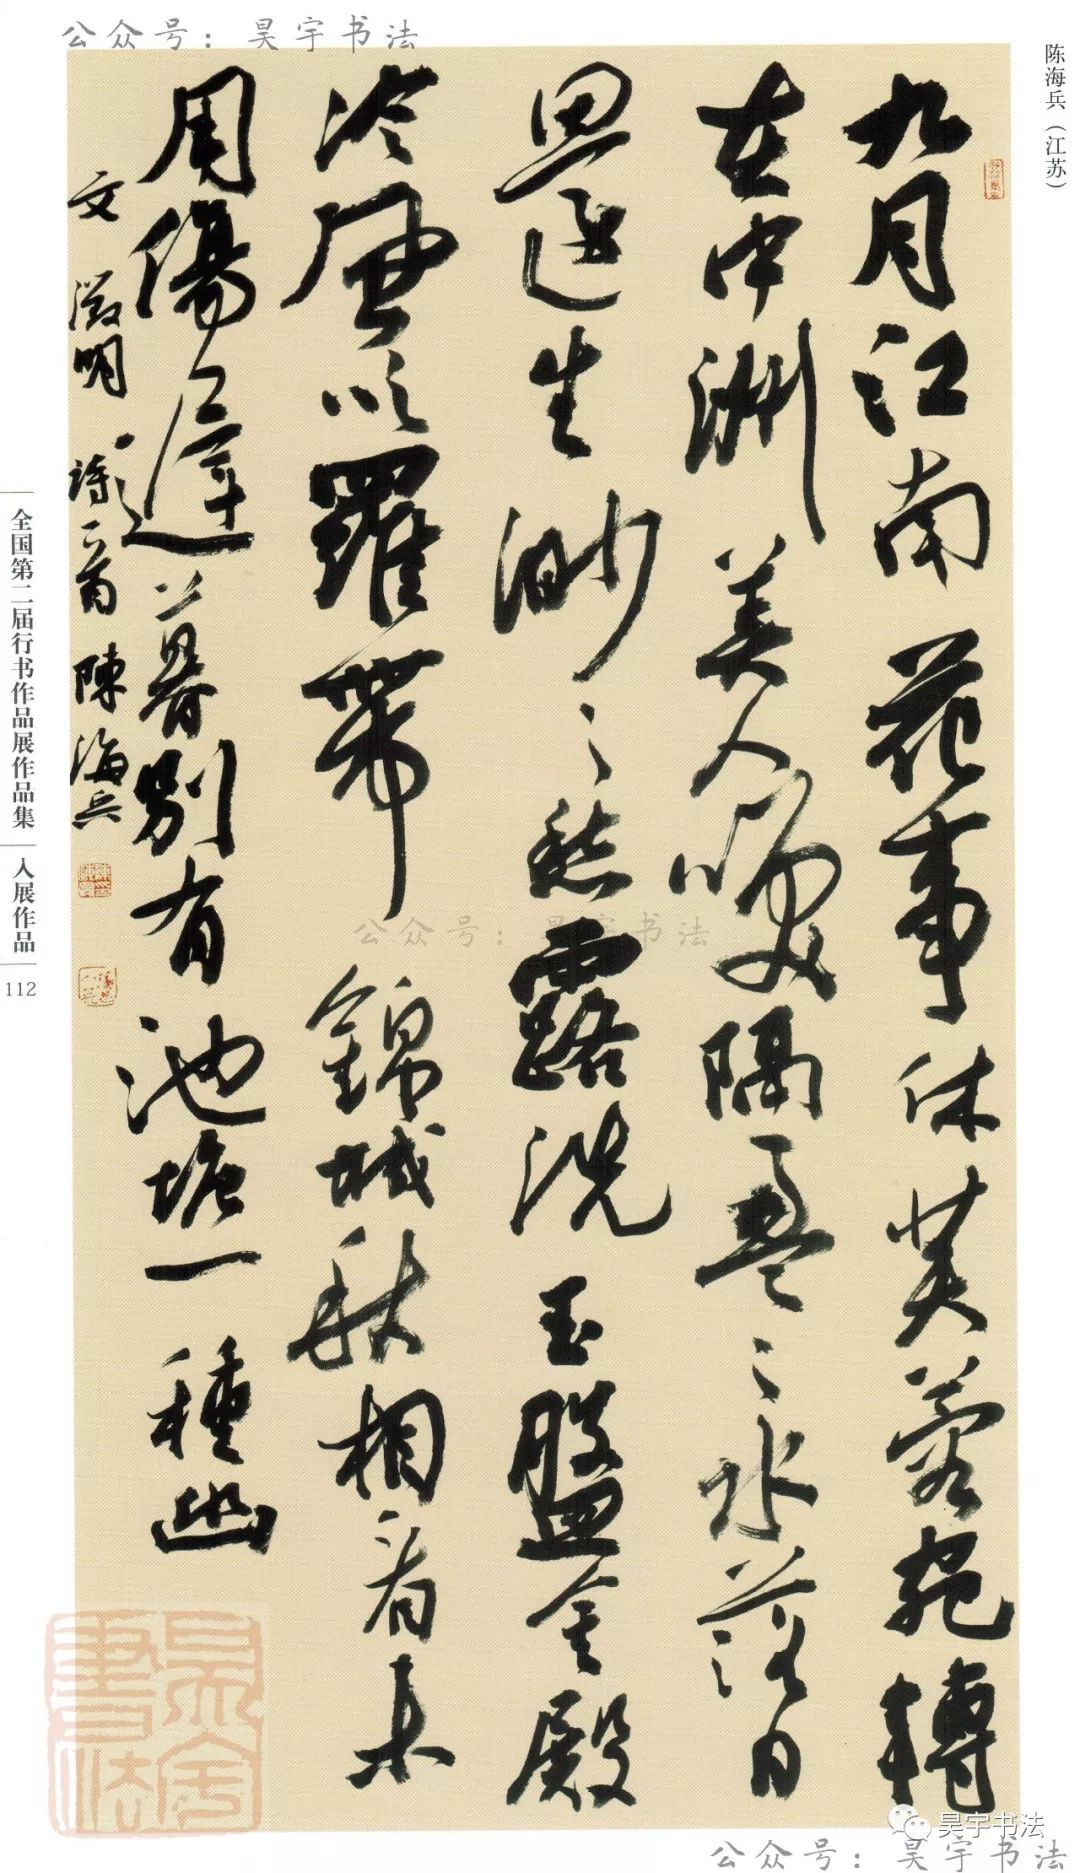 公众号：昊宇书法
陈海兵（江苏）
九月江南花事休芙蓉宛轉
在中洲美人咲隔盈々水落日
還生渺々愁露洗玉盤金殿
冷風吹羅帶錦城秋相看未
用傷遲暮別有池塘一種幽
文徵明詩一首陳海兵
全国第二届行书作品展作品集
入展作品
112
公众号：昊宇书法
昊宇書法
昊宇书法
公众号：昊宇书法